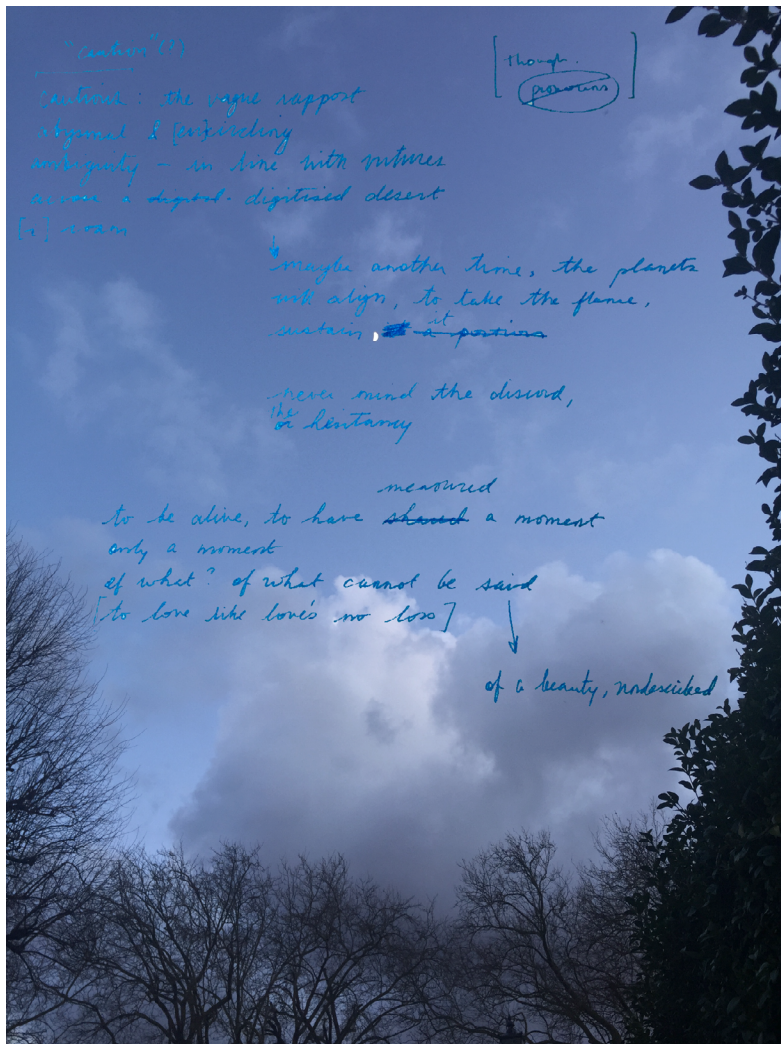 "Caution"(?)
[though.
pronouns]
the vague rapport
abysmal & [en]circling
ambiguity – in line with vultures
across a digital-digitised desert
[a] roam
maybe another time, the planets
will align, to take the flame,
sustain it a portion
never mind the discord,
the
or hesitancy
measured
to be alive, to have shared a moment
only a moment
of what? of what cannot be said
[to love like love's no loss]
of a beauty, nondescribed